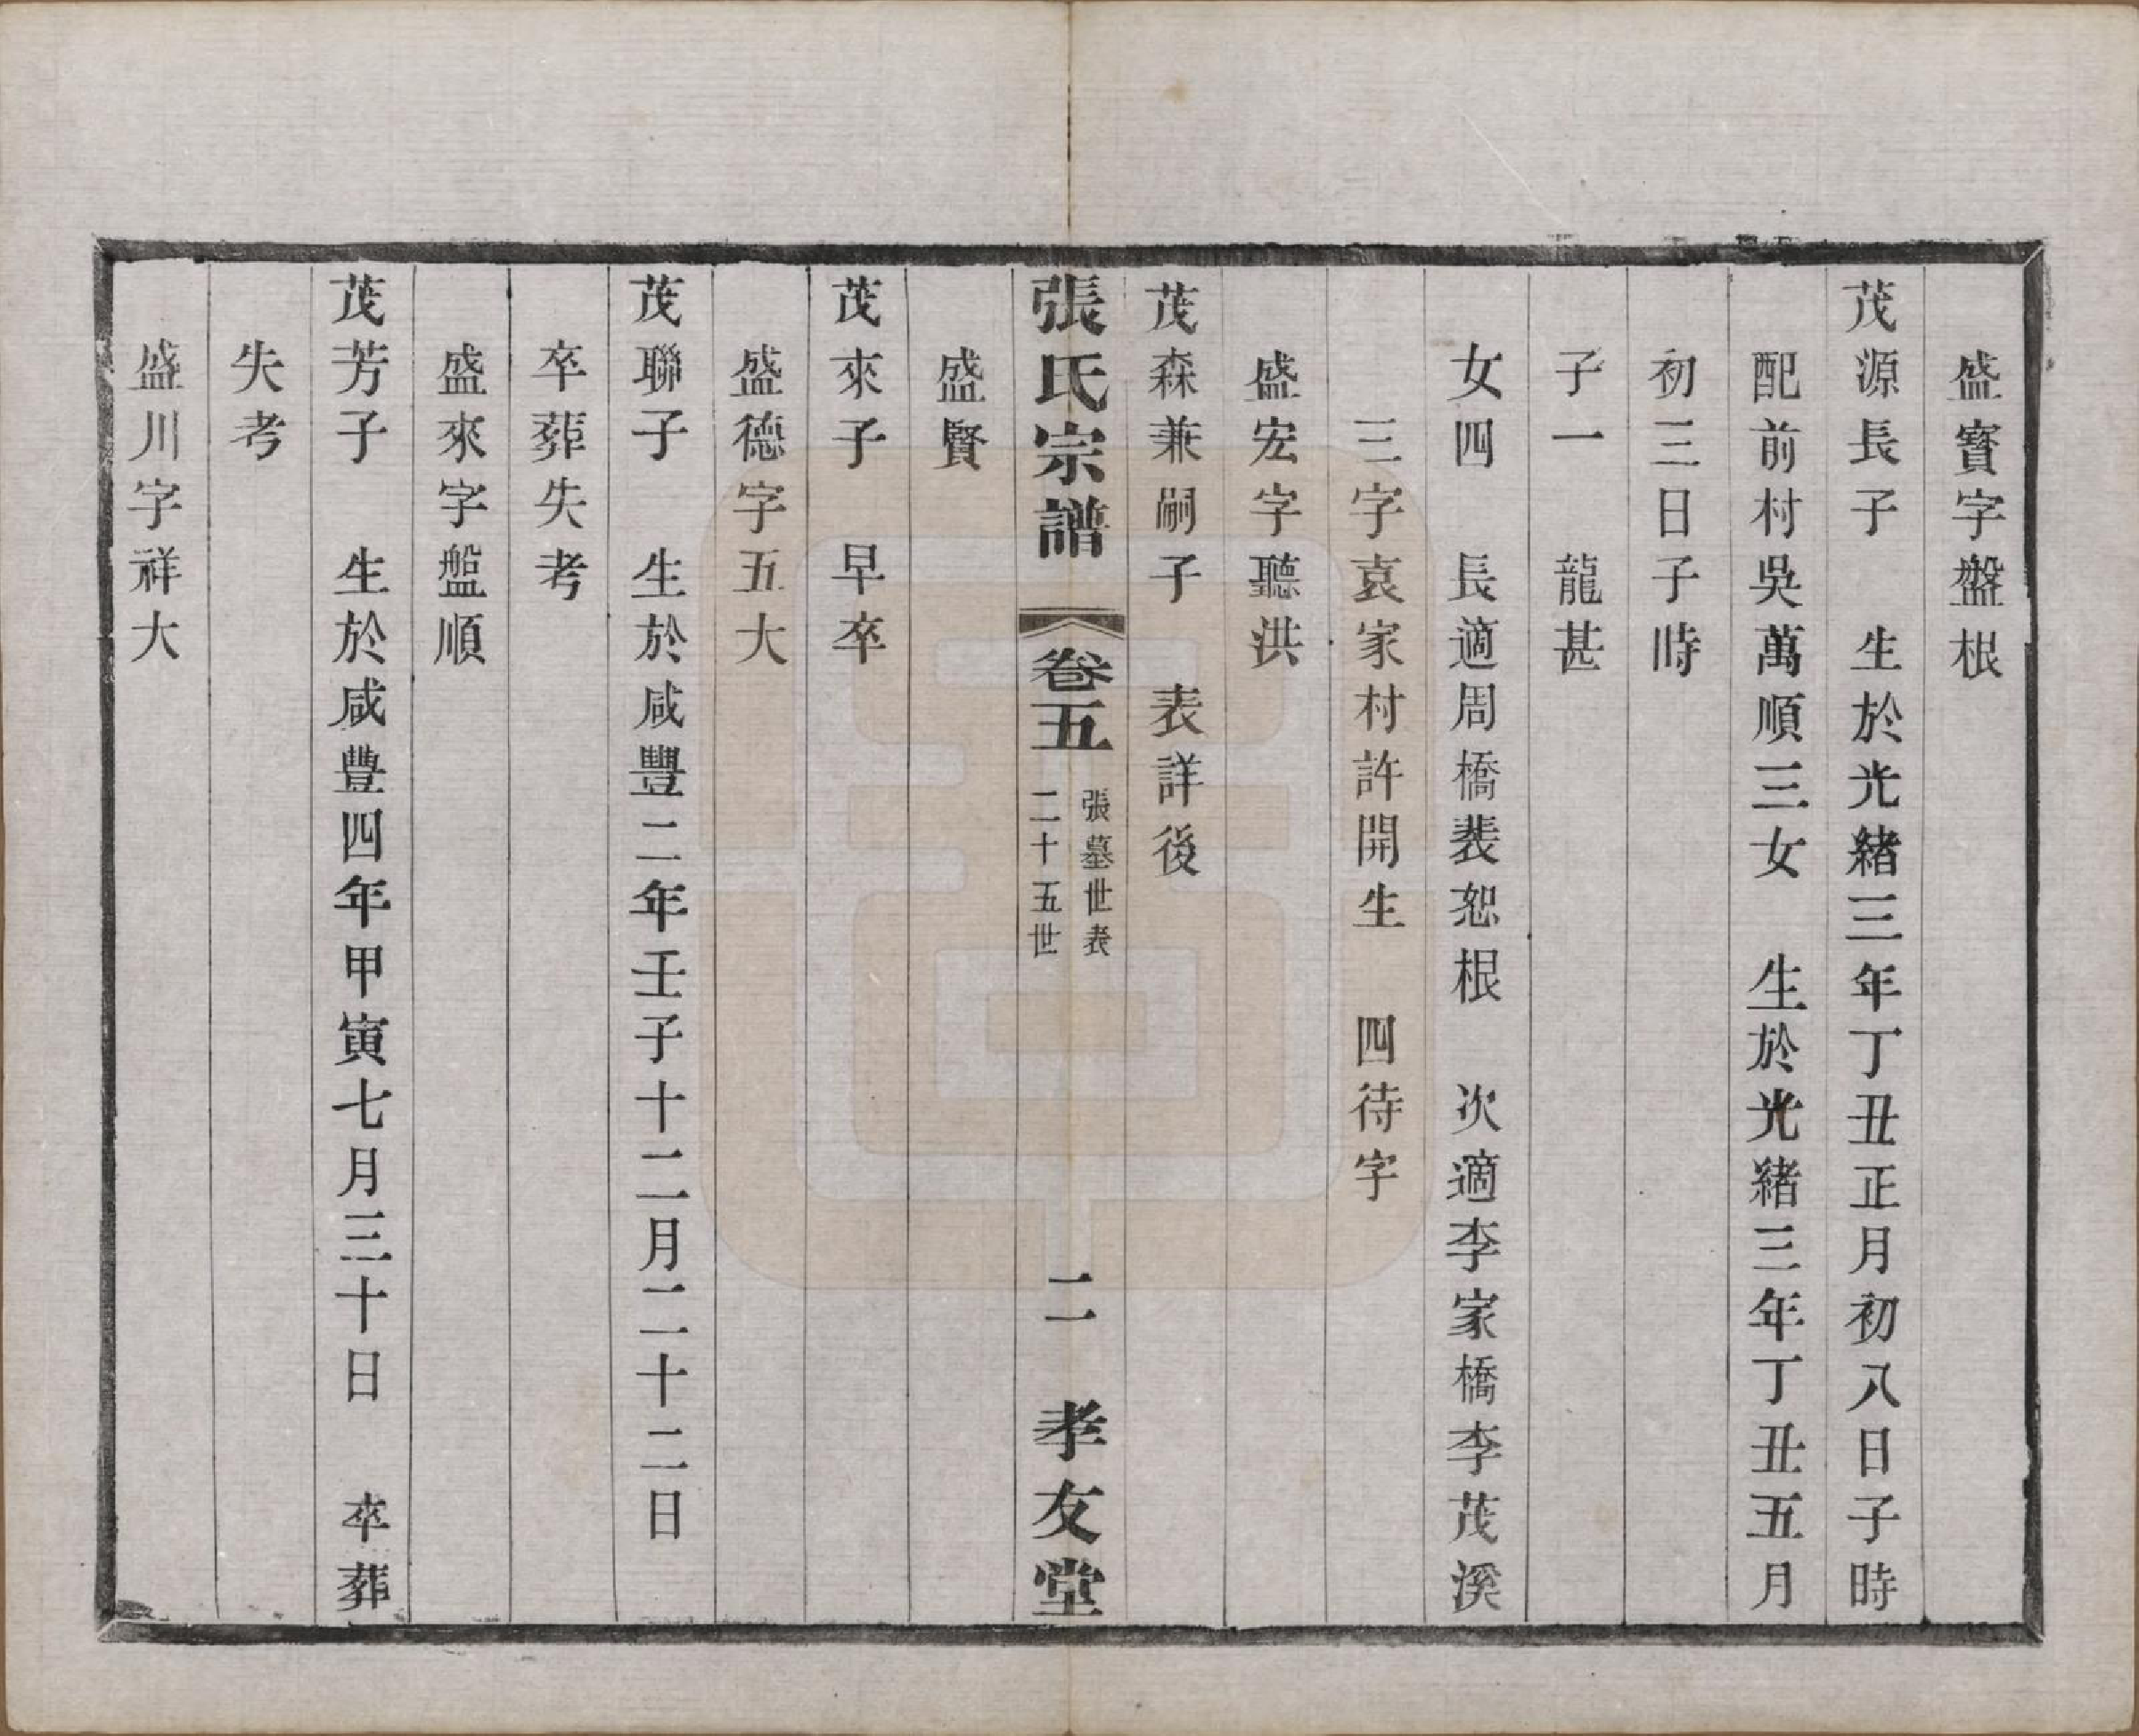 盛寳字盤根
茂源長子　生於光緒三年丁丑正月初八日子時
配前村吳萬順三女　生於光緒三年丁丑五月
初三日子時
子一　龍甚
女四　長適周橋裴恕根　次適李家橋李茂溪
三字袁家村許開生　四待字
盛宏字聽洪
茂森兼嗣子　表詳後
張氏宗譜　卷五　張墓世表　二十五世　二　孝友堂
盛賢
茂來子　早卒
盛德字五大
茂聯子　生於咸豐二年壬子十二月二十二日
卒葬失考
盛來字盤順
茂芳子　生於咸豐四年甲寅七月三十日　卒葬
失考
盛川字祥大